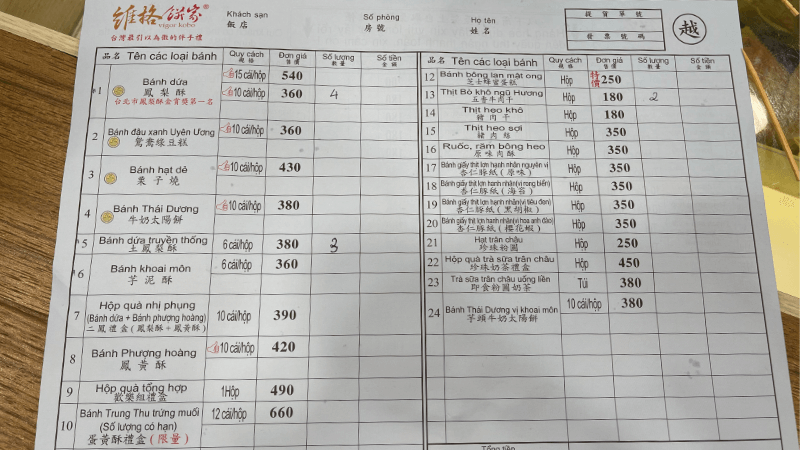 維格餅家®
vigor kobo
台灣最引以為傲的伴手禮
Khách sạn
飯店
Số phòng
房號
Họ tên
姓名
提貨單號
發票號碼
越
品名 Tên các loại bánh
Quy cách
規格
Đơn giá
售價
Số lượng
數量
Số tiền
金額
1
Bánh dứa
鳳梨酥
台北市鳳梨酥金賞獎第一名
15 cái/hộp 540
10 cái/hộp 360 4
2
Bánh đâu xanh Uyên Ương
鴛鴦綠豆糕
10 cái/hộp 360
3
Bánh hạt dẻ
栗子燒
10 cái/hộp 430
4
Bánh Thái Dương
牛奶太陽餅
10 cái/hộp 380
5
Bánh dứa truyền thống
土鳳梨酥
6 cái/hộp 380 3
6
Bánh khoai môn
芋泥酥
6 cái/hộp 360
7
Hộp quà nhị phụng
(Bánh dứa + Bánh phượng hoàng)
二鳳禮盒(鳳梨酥+鳳黃酥)
10 cái/hộp 390
8
Bánh Phượng hoàng
鳳黃酥
10 cái/hộp 420
9
Hộp quà tổng hợp
歡樂組禮盒
1Hộp 490
10
Bánh Trung Thu trứng muối
(Số lượng có hạn)
蛋黃酥禮盒(限量)
12 cái/hộp 660
品名 Tên các loại bánh
Quy cách
規格
Đơn giá
售價
Số lượng
數量
Số tiền
金額
12 Bánh bông lan mật ong
芝士蜂蜜蛋糕
Hộp 特價 250
13 Thịt Bò khô ngũ Hương
五香牛肉干
Hộp 180 2
14 Thịt heo khô
豬肉干
Hộp 180
15 Thịt heo sợi
豬肉絲
Hộp 350
16 Ruốc, răm bông heo
原味肉酥
Hộp 350
17 Bánh giấy thịt lợn hạnh nhân nguyên vị
杏仁豚紙(原味)
Hộp 350
18 Bánh giấy thịt lợn hạnh nhân(vị rong biển)
杏仁豚紙(海苔)
Hộp 350
19 Bánh giấy thịt lợn hạnh nhân(vị tiêu đen)
杏仁豚紙(黑胡椒)
Hộp 350
20 Bánh giấy thịt lợn hạnh nhân(vị hoa anh đào)
杏仁豚紙(櫻花蝦)
Hộp 350
21 Hạt trân châu
珍珠粉圓
Hộp 250
22 Hộp quà trà sữa trân châu
珍珠奶茶禮盒
Hộp 450
23 Trà sữa trân châu uống liền
即食粉圓奶茶
Túi 380
24 Bánh Thái Dương vị khoai môn
芋頭牛奶太陽餅
10 cái/hộp 380
Tổng tiền